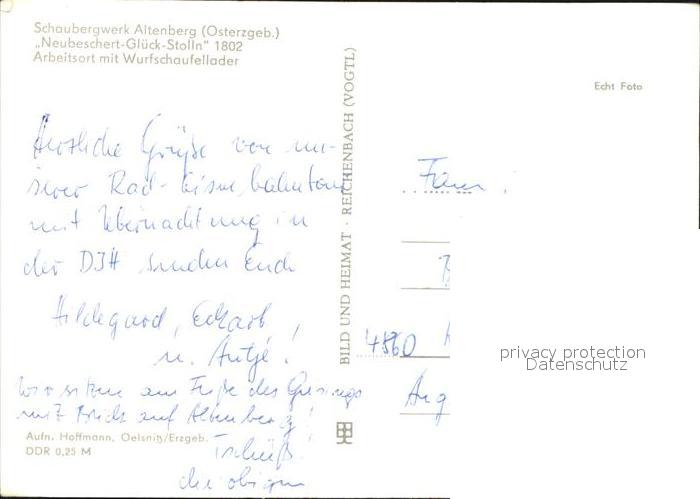 Schaubergwerk Altenberg (Osterzgeb.)
„Neubeschert-Glück-Stolln" 1802
Arbeitsort mit Wurfschaufellader
Echt Foto
Herzliche Grüße von un-
serer Rad- Eisenbahntour
mit Übernachtung in
der DJH senden Euch
Hildegard, Eckart,
u. Antje!
Wir sitzen am Fuße des Geisings
mit Blick auf Altenberg!
Tschüß
die obigen
Aufn. Hoffmann, Oelsnitz/Erzgeb.
DDR 0,25 M
BILD UND HEIMAT · REICHENBACH (VOGTL)
Fam.
privacy protection
Datenschutz